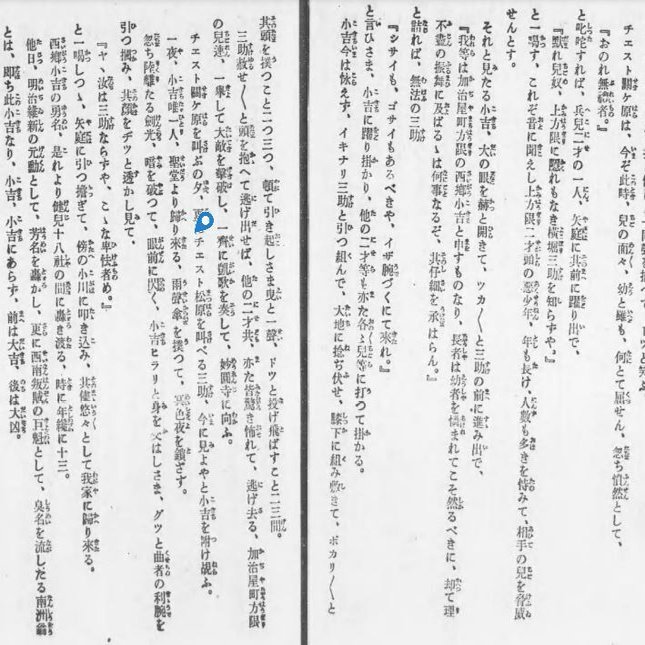 チェスト關ケ原は、今ぞ此時、兒の面々、幼と雖も、何とて屈せん、忽ち憤然として、
『おのれ無禮者。』
と叱咤すれば、兵兒二才の一人、矢庭に其前に躍り出で、
『默れ兒奴、上方限に隱れもなき横堀三助を知らずや。』
と一喝す、これぞ音に聞えし上方限二才頭の惡少年、年も長け、人數も多きを恃みて、相手の兒を脅威
せんとす。
それと見たる小吉、大の眼を赫と開きて、ツカ〳〵と三助の前に進み出で、
『我等は加治屋町方限の西郷小吉と申すものなり、長者は幼者を憐まれてこそ然るべきに、却て理
不盡の振舞に及ばるゝは何事なるぞ、其仔細を承はらん。』
と詰れば、無法の三助、
『シサイも、ゴサイもあるべきや、イザ腕づくにて來れ。』
と言ひさま、小吉に躍り掛かり、他の二才等も亦た各〻兒等に打つて掛かる。
小吉今は怺えず、イキナリ三助と引つ組んで、大地に捻ぢ伏せ、膝下に組み敷きて、ポカリ〳〵と
其頭を撲つこと二つ三つ、頓て引き起しさま曳と一聲、ドツと投げ飛ばすこと二三間。
三助敵せ〳〵と頭を抱へて逃げ出せば、他の二才共、亦た皆驚き怖れて、逃げ去る、加治屋町方限
の兒連、一擧して大敵を擊破し、一齊に凱歌を奏して、妙圓寺に向ふ。
チェスト關ケ原を叫ぶの夕、チェスト松原を叫べる三助、今に見よやと小吉を附け覘ふ。
一夜、小吉唯一人、聖堂より歸り來る、雨聲傘を撲つて、冥色夜を鎖ざす。
忽ち陸離たる劍光、暗を破つて、眼前に閃く、小吉ヒラリと身を交はしさま、グツと曲者の利腕を
引つ摑み、其顏をヂツと透かし見て、
『ヤ、汝は三助ならずや、こゝな卑怯者め。』
と一喝しつゝ、矢庭に引つ擔ぎて、傍の小川に叩き込み、其儘悠々として我家に歸り來る。
西郷小吉の勇名、是れより健兒十八社の間に轟き渡る、時に年纔に十三。
他日、明治維新の元勳として、芳名を轟かし、更に西南叛賊の巨魁として、臭名を流したる南洲翁
とは、即ち此小吉なり、小吉、小吉にあらず、前は大吉、後は大凶。